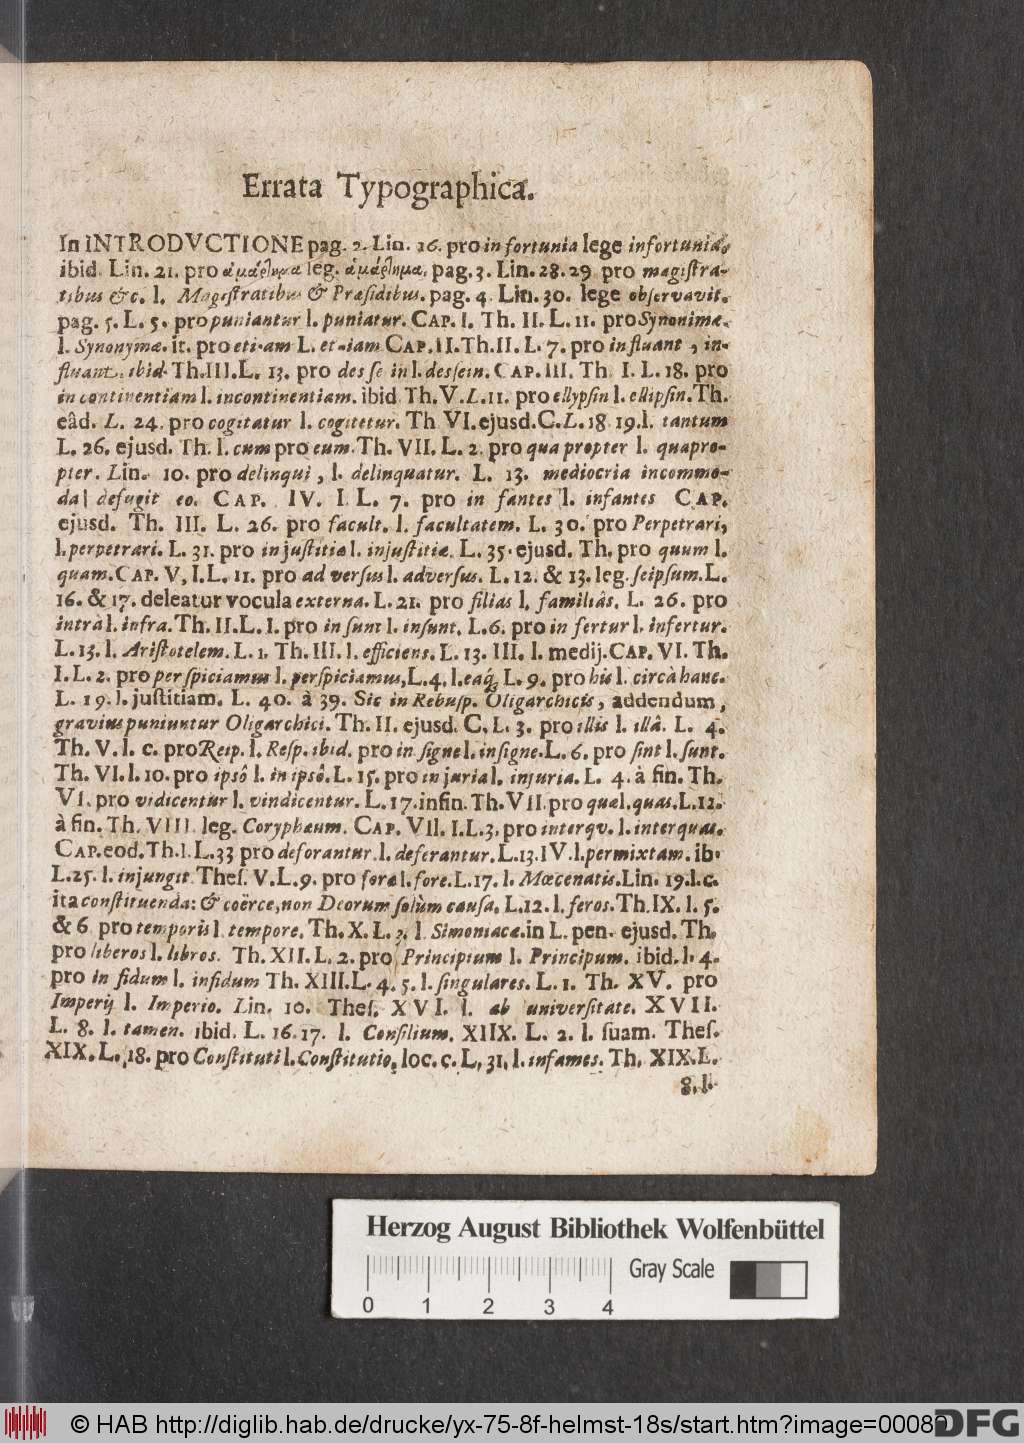 Errata Typographica.
In INTRODVCTIONE pag. 2. Lin. 16. pro in fortunia lege infortunia,
ibid. Lin. 21. pro leg. ἁμάρτημα. pag. 3. Lin. 28. 29 pro magiſtra-
tibus &c. l. Magiſtratibus & Præſidibus. pag. 4. Lin. 30. lege obſervavit.
pag. 5. L. 5. pro puniantur l. puniatur. CAP. I. Th. II. L. 11. pro Synonimæ.
l. Synonymæ. it. pro eti-am L. et-iam CAP. II. Th. II. L. 7. pro in fluant, in-
fluant. ibid. Th. III. L. 13. pro des ſe in l. desſein. CAP. III. Th. I. L. 18. pro
in continentiam l. incontinentiam. ibid Th. V. L. 11. pro ellypſin l. ellipſin. Th.
eâd. L. 24. pro cogitatur l. cogitetur. Th VI. ejusd. C. L. 18 19. l. tantum
L. 26. ejusd. Th. l. cum pro eum. Th. VII. L. 2. pro qua propter l. quapro-
pter. Lin. 10. pro delinqui, l. delinquatur. L. 13. mediocria incommo-
da| defugit eo. CAP. IV. I L. 7. pro in fantes l. infantes CAP.
ejusd. Th. III. L. 26. pro facult. l. facultatem. L. 30. pro Perpetrari,
l. perpetrari. L. 31. pro in juſtitiæ l. injuſtitiæ. L. 35. ejusd. Th. pro quum l.
quam. CAP. V, I. L. 11. pro ad verſus l. adverſus. L. 12. & 13. leg. ſeipſum. L.
16. & 17. deleatur vocula externa. L. 21. pro filias l. familiâs. L. 26. pro
intrà l. infra. Th. II. L. I. pro in ſunt l. inſunt. L. 6. pro in fertur l. infertur.
L. 13. l. Ariſtotelem. L. 1. Th. III. l. efficiens. L. 13. III. l. medij. CAP. VI. Th.
I. L. 2. pro per ſpiciamus l. perſpiciamus, L. 4. l. eaq́; L. 9. pro his l. circà hanc.
L. 19. l. juſtitiam. L. 40. à 39. Sic in Rebusp. Oligarchicis, addendum,
gravius puniuntur Oligarchici. Th. II. ejusd. C. L. 3. pro illis l. illâ. L. 4.
Th. V. l. c. pro Reip. l. Reſp. ibid. pro in ſigne l. inſigne. L. 6. pro ſint l. ſunt.
Th. VI. l. 10. pro ipsô l. in ipsô. L. 15. pro in juria l. injuria. L. 4. à fin. Th.
VI. pro vidicentur l. vindicentur. L. 17. infin. Th. VII. pro quæ l. quas. L. 12.
à fin. Th. VIII. leg. Coryphæum. CAP. VII. I. L. 3. pro interqv. l. interquas.
CAP. eod. Th. I. L. 33 pro deforantur l. deferantur. L. 13. IV. l. permixtam. ib.
L. 25. l. injungit. Theſ. V. L. 9. pro foræ l. fore. L. 17. l. Mœcenatis. Lin. 19. l. c.
ita conſtituenda: & coërce, non Deorum ſolùm causa. L. 12. l. feros. Th. IX. l. 5.
& 6. pro temporis l. tempore. Th. X. L. 3. l. Simoniaca. in L. pen. ejusd. Th.
pro liberos l. libros. Th. XII. L. 2. pro Principium l. Principum. ibid. l. 4.
pro in fidum l. infidum Th. XIII. L. 4. 5. l. ſingulares. L. 1. Th. XV. pro
Imperij l. Imperio. Lin. 10. Theſ. XVI. l. ab univerſitate. XVII.
L. 8. l. tamen. ibid. L. 16. 17. l. Conſilium. XIIX. L. 2. l. ſuam. Theſ.
XIX. L. 18. pro Conſtituti l. Conſtitutio, loc. c. L. 31. l. infames. Th. XIX. L.
8. l.
Herzog August Bibliothek Wolfenbüttel
Gray Scale
0 1 2 3 4
© HAB http://diglib.hab.de/drucke/yx-75-8f-helmst-18s/start.htm?image=00089
DFG